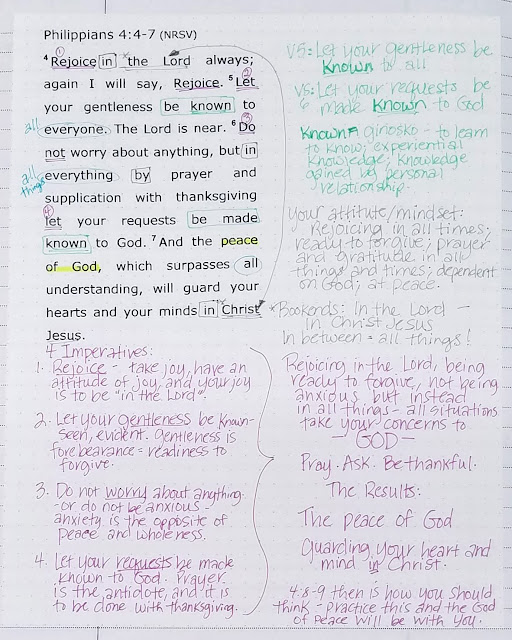 Philippians 4:4-7 (NRSV)
4 Rejoice in the Lord always;
again I will say, Rejoice. 5 Let
your gentleness be known to
everyone. The Lord is near. 6 Do
not worry about anything, but in
everything by prayer and
supplication with thanksgiving
let your requests be made
known to God. 7 And the peace
of God, which surpasses all
understanding, will guard your
hearts and your minds in Christ
Jesus.
1
2
3
4
all
all
things
V5: Let your gentleness be
Known to all
V5: Let your requests be
6 made Known to God
Known = ginosko - to learn
to know; experiential
knowledge; knowledge
gained by personal
relationship.
Your attitute/mindset:
Rejoicing in all times;
ready to forgive; prayer
and gratitude in all
things and times; dependent
on God; at peace.
*Bookends: In the Lord -
in Christ Jesus
In between = all things!
4 Imperatives:
1. Rejoice - take joy, have an
attitude of joy, and your joy
is to be "in the Lord".
2. Let your gentleness be known-
seen, evident. Gentleness is
forebearance - readiness to
forgive.
3. Do not worry about anything
-or do not be anxious -
anxiety is the opposite of
peace and wholeness.
4. Let your requests be made
known to God. Prayer
is the antidote, and it is
to be done with thanksgiving.
Rejoicing in the Lord, being
ready to forgive, not being
anxious but instead
in all things - all situations
take your concerns to
- GOD -
Pray. Ask. Be thankful.
The Results:
The peace of God
Guarding your heart and
mind in Christ.
4:8-9 then is how you should
think - practice this and the God
of Peace will be with you.